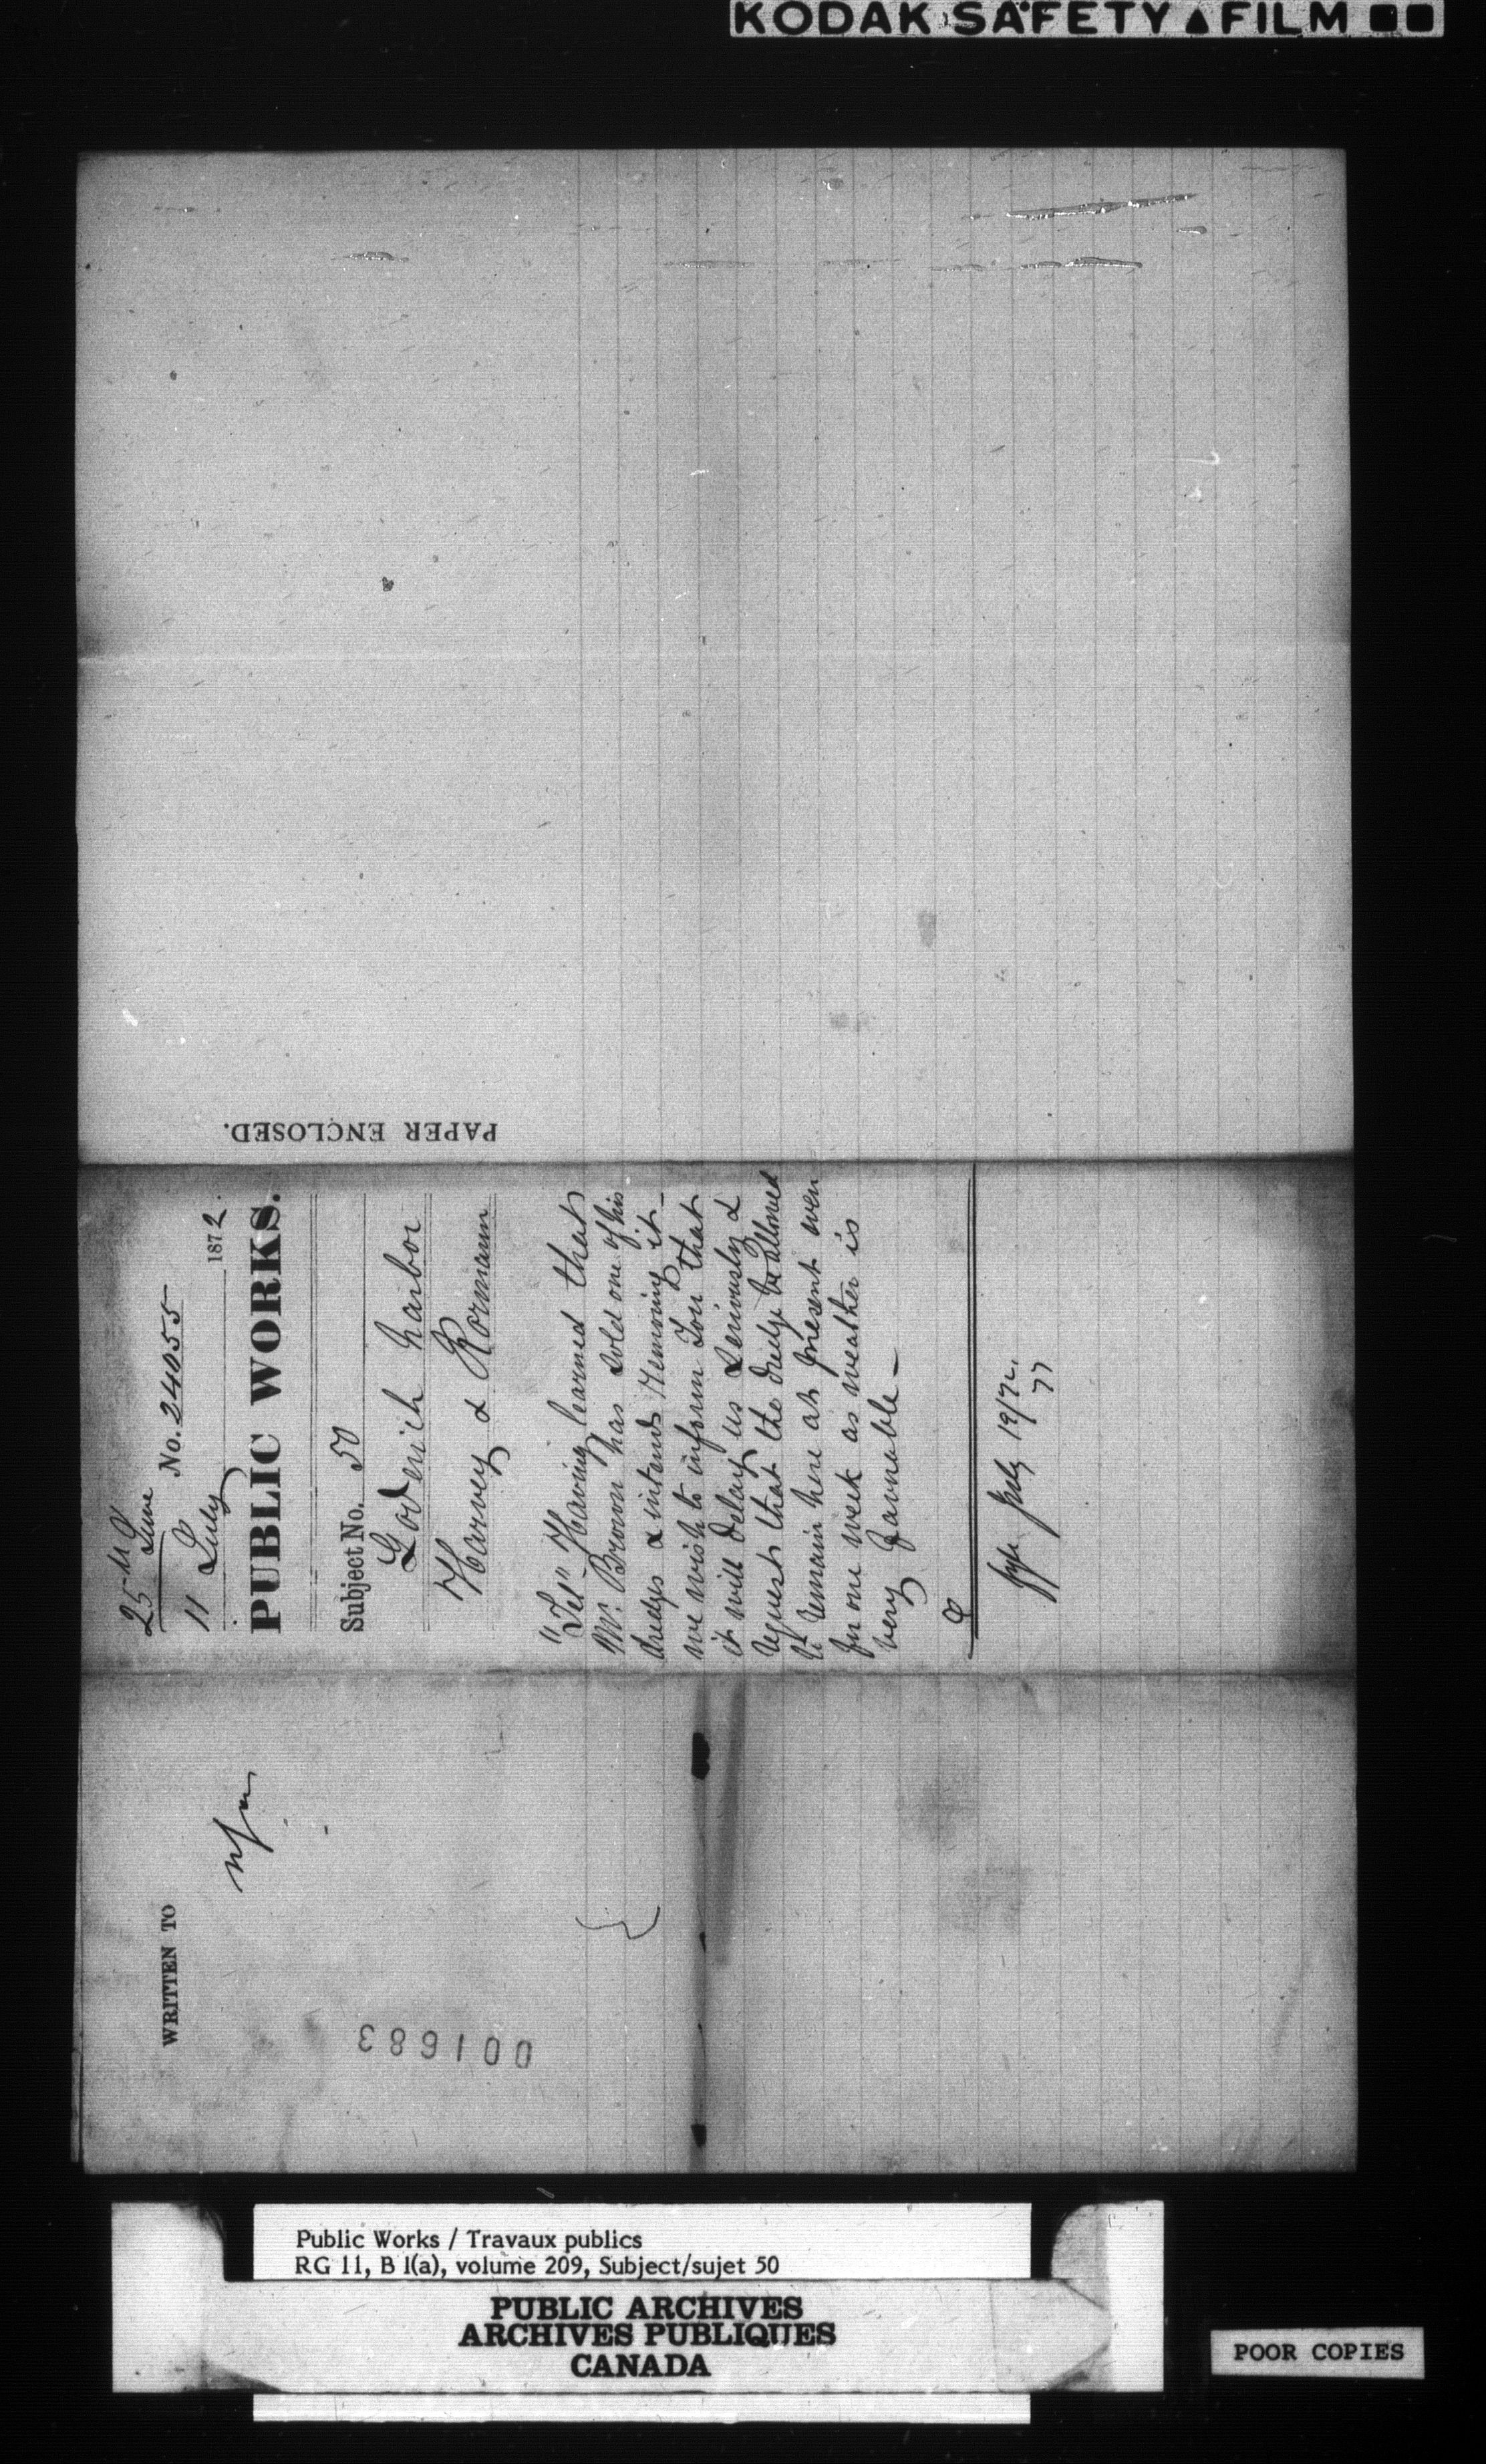 KODAK SAFETY FILM
PAPER ENCLOSED.
25th June
No. 24055
11 July 1872.
PUBLIC WORKS.
Subject No. 50
Goderich harbor
Harvey & Kormann
"Tel" Having learned that
Mr. Brown has sold one of his
dredges & intends removing it-
we wish to inform You that
it will delay us seriously &
request that the dredge be allowed
to remain here at present even
for one week as weather is
very favorable -
July 19/72.
77
WRITTEN TO
001683
Public Works / Travaux publics
RG 11, B 1(a), volume 209, Subject/sujet 50
PUBLIC ARCHIVES
ARCHIVES PUBLIQUES
CANADA
POOR COPIES